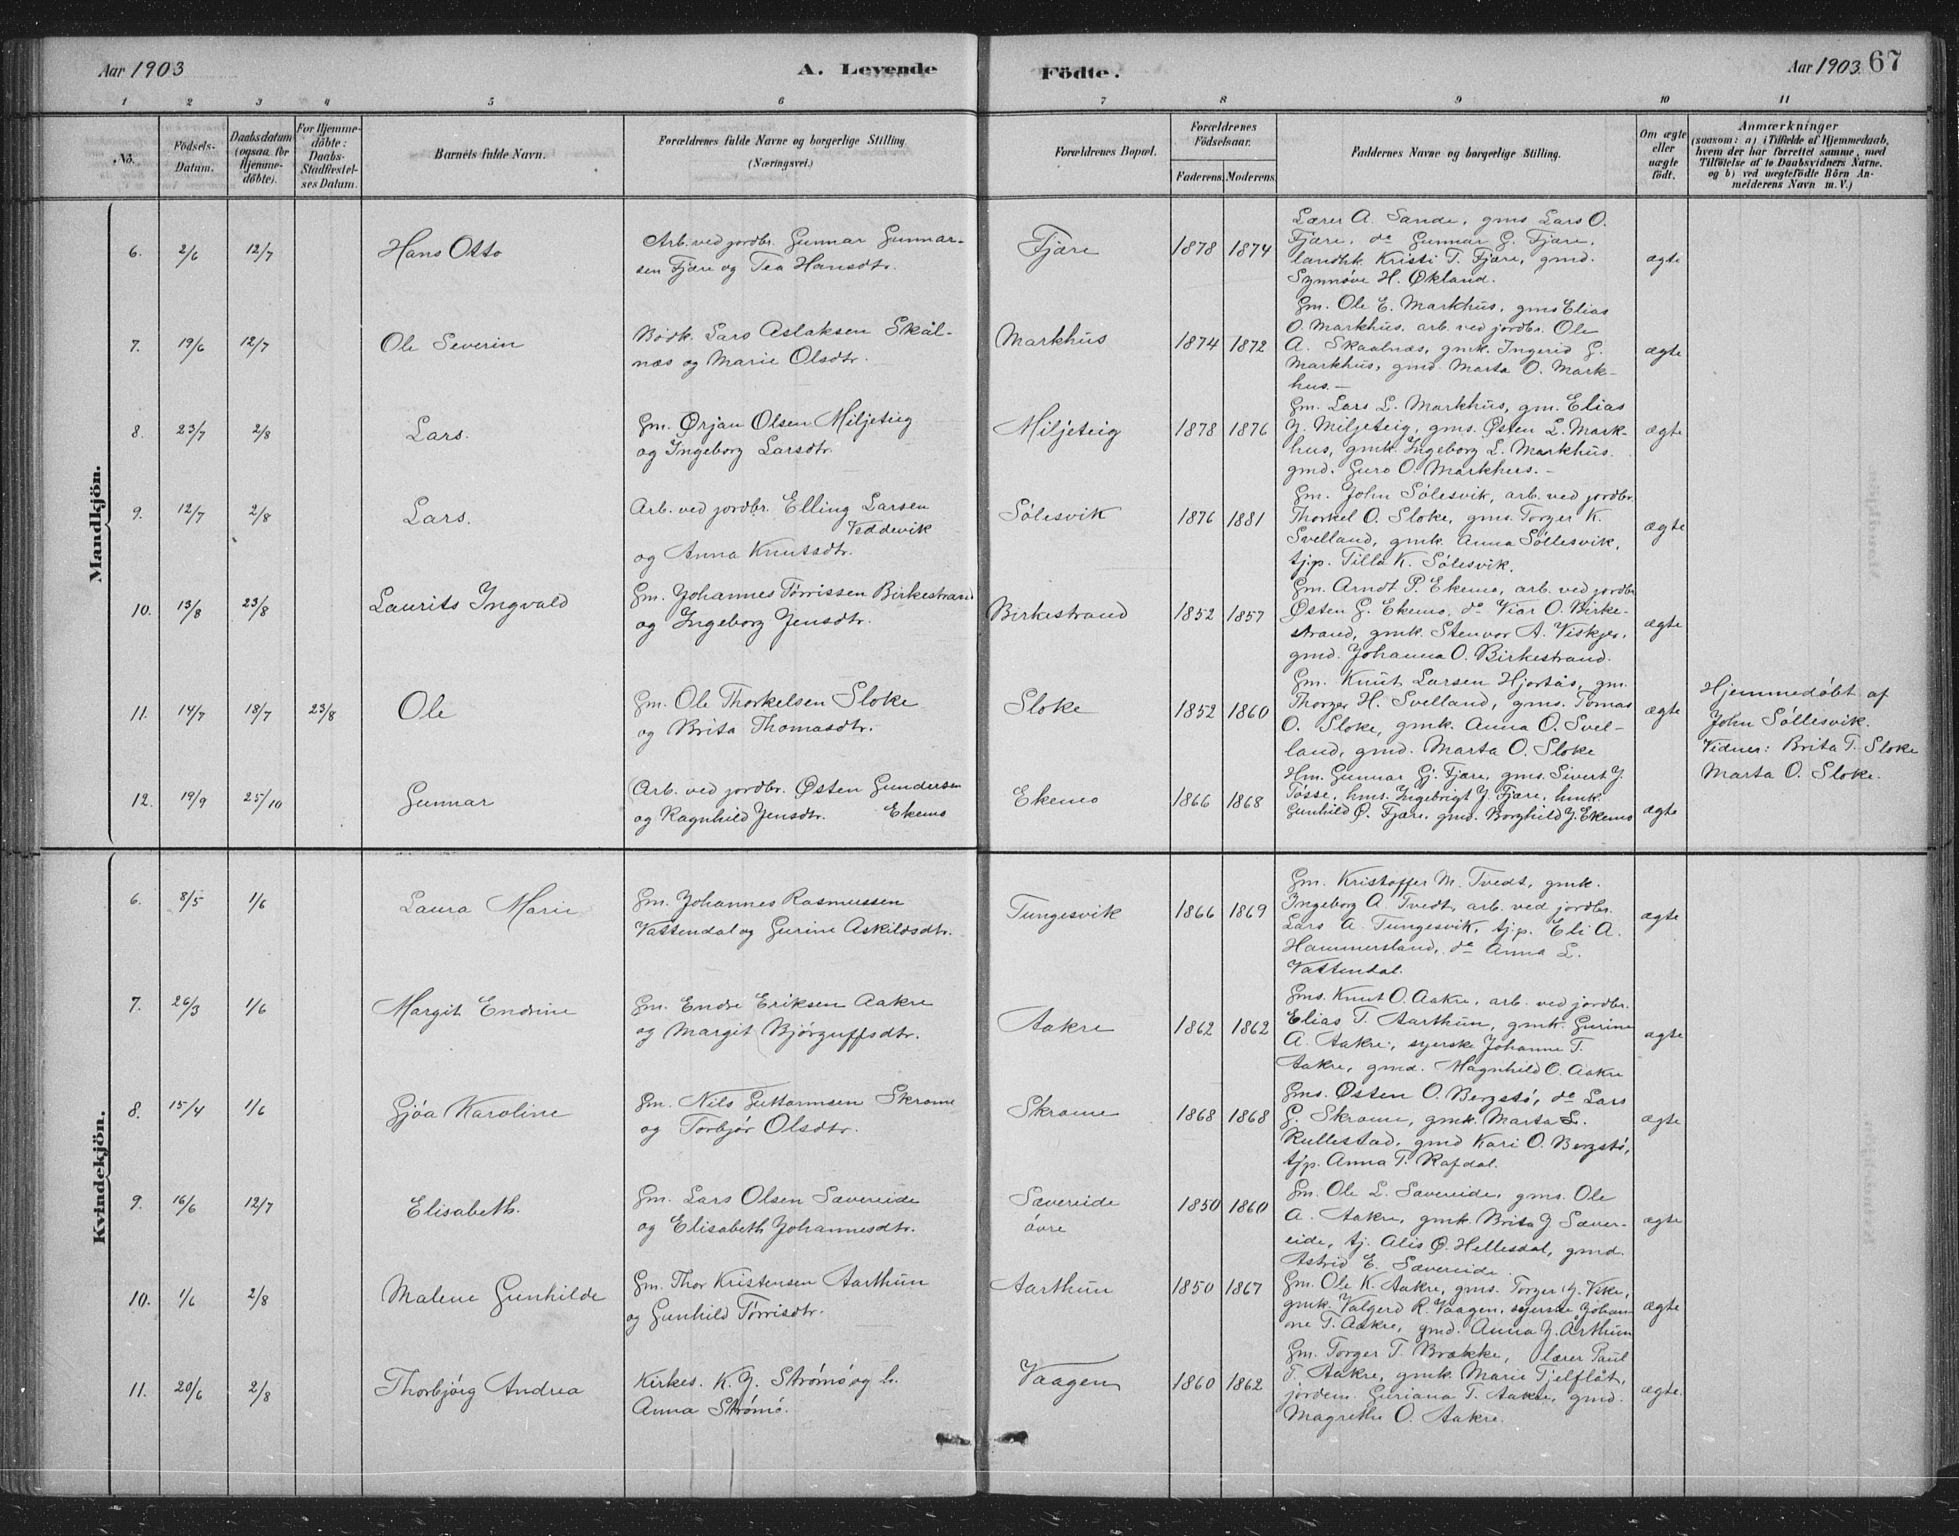 Aar 1903
A. Levende
Födte.
Aar 1903
67
1 2 3 4 5 6 7 8 9 10 11
No.
Födsels-
Datum.
Daabsdatum
(ogsaa for
Hjemme-
döbte).
For Hjemme-
döbte:
Daabs-
Stadfæstel-
ses Datum.
Barnets fulde Navn.
Forældrenes fulde Navne og borgerlige Stilling
(Næringsvei.)
Forældrenes Bopæl.
Forældrenes
Födselsaar.
Faderens. Moderens.
Faddernes Navne og borgerlige Stilling.
Om ægte
eller
uægte
födt.
Anmærkninger
(saasom: a) i Tilfælde af Hjemmedaab,
hvem der har forrettet samme, med
Tilföielse af to Daabsvidners Navne,
og b) ved uægtefödte Börn An-
melderens Navn m. V.)
Mandkjön.
6. 2/6 12/7
Hans Otto
Arb. ved jordbr. Gunnar Gunnar-
sen Fjære og Tea Hansdtr.
Fjære
1878 1874
Lærer A. Sande, gms Lars O.
Fjære, do Gunnar G. Fjære,
landhk. Kristi T. Fjære, gmd.
Synnøve H. Økland.
ægte
7. 19/6 12/7
Ole Severin
Bødk. Lars Aslaksen Skål-
næs og Marie Olsdtr.
Markhus
1874 1872
Gm. Ole E. Markhus, gms Elias
O. Markhus, arb. ved jordbr. Ole
A. Skaalnæs, gmk. Ingerid G.
Markhus, gmd. Marta O. Mark-
hus.-
ægte
8. 23/7 2/8
Lars.
Gm. Ørjan Olsen Miljeteig
og Ingeborg Larsdtr.
Miljeteig
1878 1876
Gm. Lars L. Markhus, gm. Elias
N. Miljeteig, gms. Østen L. Mark-
hus, gmk. Ingeborg L. Markhus.
gmd. Guro O. Markhus.-
ægte
9. 12/7 2/8
Lars.
Arb. ved jordbr. Elling Larsen
Veddevik
og Anna Knutsdtr.
Sølesvik
1876 1881
Gm. John Sølesvik, arb. ved jordbr.
Thorkel O. Sloke, gms. Torger K.
Svelland, gmk. Anna Søllesvik,
tjp. Tilla K. Sølesvik.
ægte
10. 13/8 23/8
Laurits Ingvald
Gm. Johannes Tørrissen Birkestrand
og Ingeborg Jensdtr.
Birkestrand
1852 1857
Gm. Arndt P. Ekemo, arb. ved jordbr
Østen G. Ekemo, do Viar O. Birke-
strand, gmk. Stenvor A. Viskjer,
gmd. Johanna O. Birkestrand.
ægte
11. 14/7 18/7 23/8
Ole
Gm. Ole Thorkelsen Sloke
og Brita Thomasdtr.
Sloke
1852 1860
Gm. Knut Larsen Hjortås, gm.
Thorger H. Svelland, gms. Tomas
O. Sloke, gmk. Anna O. Svel-
land, gmd. Marta O. Sloke
ægte
Hjemmedøbt af
John Søllesvik.
Vidner: Brita T. Sloke
Marta O. Sloke.
12. 19/9 25/10
Gunnar
Arb. ved jordbr. Østen Gundersen
og Ragnhild Jensdtr. Ekemo
Ekemo
1866 1868
Hm. Gunnar Gj. Fjære, gms. Sivert J.
Tøsse, hms. Ingebrigt J. Fjære, hmk.
Gunhild Ø. Fjære, gmd. Borghild J. Ekemo
ægte
Kvindekjön.
6. 8/5 1/6
Laura Marie
Gm. Johannes Rasmussen
Vattendal og Gurine Askildsdtr.
Tungesvik
1866 1869
Gm. Kristoffer M. Tvedt, gmk.
Ingeborg A Tvedt, arb. ved jordbr.
Lars A. Tungesvik, tj.p. Eli A.
Hammersland, do Anna L.
Vattendal.
ægte
7. 26/3 1/6
Margit Endrine
Gm. Endre Eriksen Aakre
og Margit Bjørguffsdtr.
Aakre
1862 1862
Gms. Knut O. Aakre, arb. ved jordbr.
Elias T. Aarthun, gmk. Gurine
A. Aakre, syerske Johanne T.
Aakre, gmd. Magnhild O. Aakre
ægte
8. 15/4 1/6
Gjøa Karoline
Gm. Nils Guttormsen Skrome
og Torbjør Olsdtr.
Skrome
1868 1868
Gms. Østen O. Bergstø, do Lars
G. Skrome, gmk. Marta L.
Rullestad, gmd Kari O. Bergstø,
tjp. Anna T. Rafdal.
ægte
9. 16/6 12/7
Elisabeth.
Gm. Lars Olsen Sævereide
og Elisabeth Johannesdtr.
Sævereide
øvre
1850 1860
Gm. Ole L. Sævereide, gms. Ole
A. Aakre, gmk. Brita J Sæver-
eide, tj. Alis Ø. Hellesdal, gmd.
Astrid E. Sævereide
ægte
10. 1/6 2/8
Malene Gunhilde
Gm. Thor Kristensen Aarthun
og Gunhild Tørrisdtr.
Aarthun
1850 1867
Gm. Ole K. Aakre, gms. Torger Vike,
gmk. Valgerd R. Vaagen, syerske Johan-
ne T. Aakre, gmd. Anna J. Arthun
ægte
11. 20/6 2/8
Thorbjørg Andrea
Kirkes. K. J. Strømø og h.
Anna Strømø.
Vaagen
1860 1862
Gm. Torger T. Brække, lærer Paul
T. Aakre, gmk. Marie Tjelflåt,
jordem. Guriana T. Aakre, gmd.
Magrethe O. Aakre.
ægte.